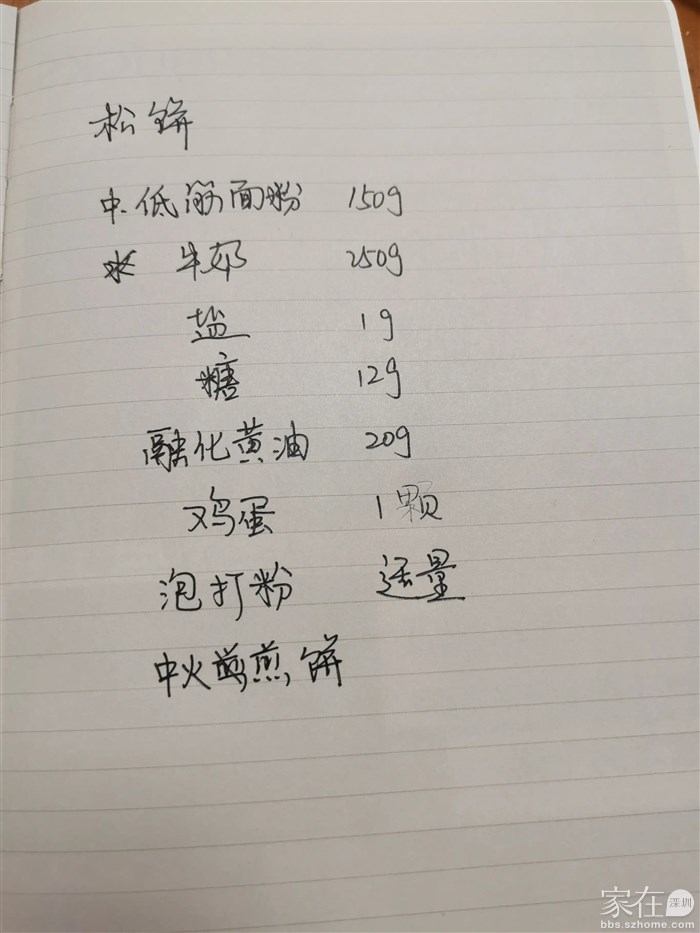 松饼
中.低筋面粉 150g
牛奶 250g
盐 1g
糖 12g
融化黄油 20g
鸡蛋 1颗
泡打粉 适量
中火煎煎饼
家在深圳
bbs.szhome.com